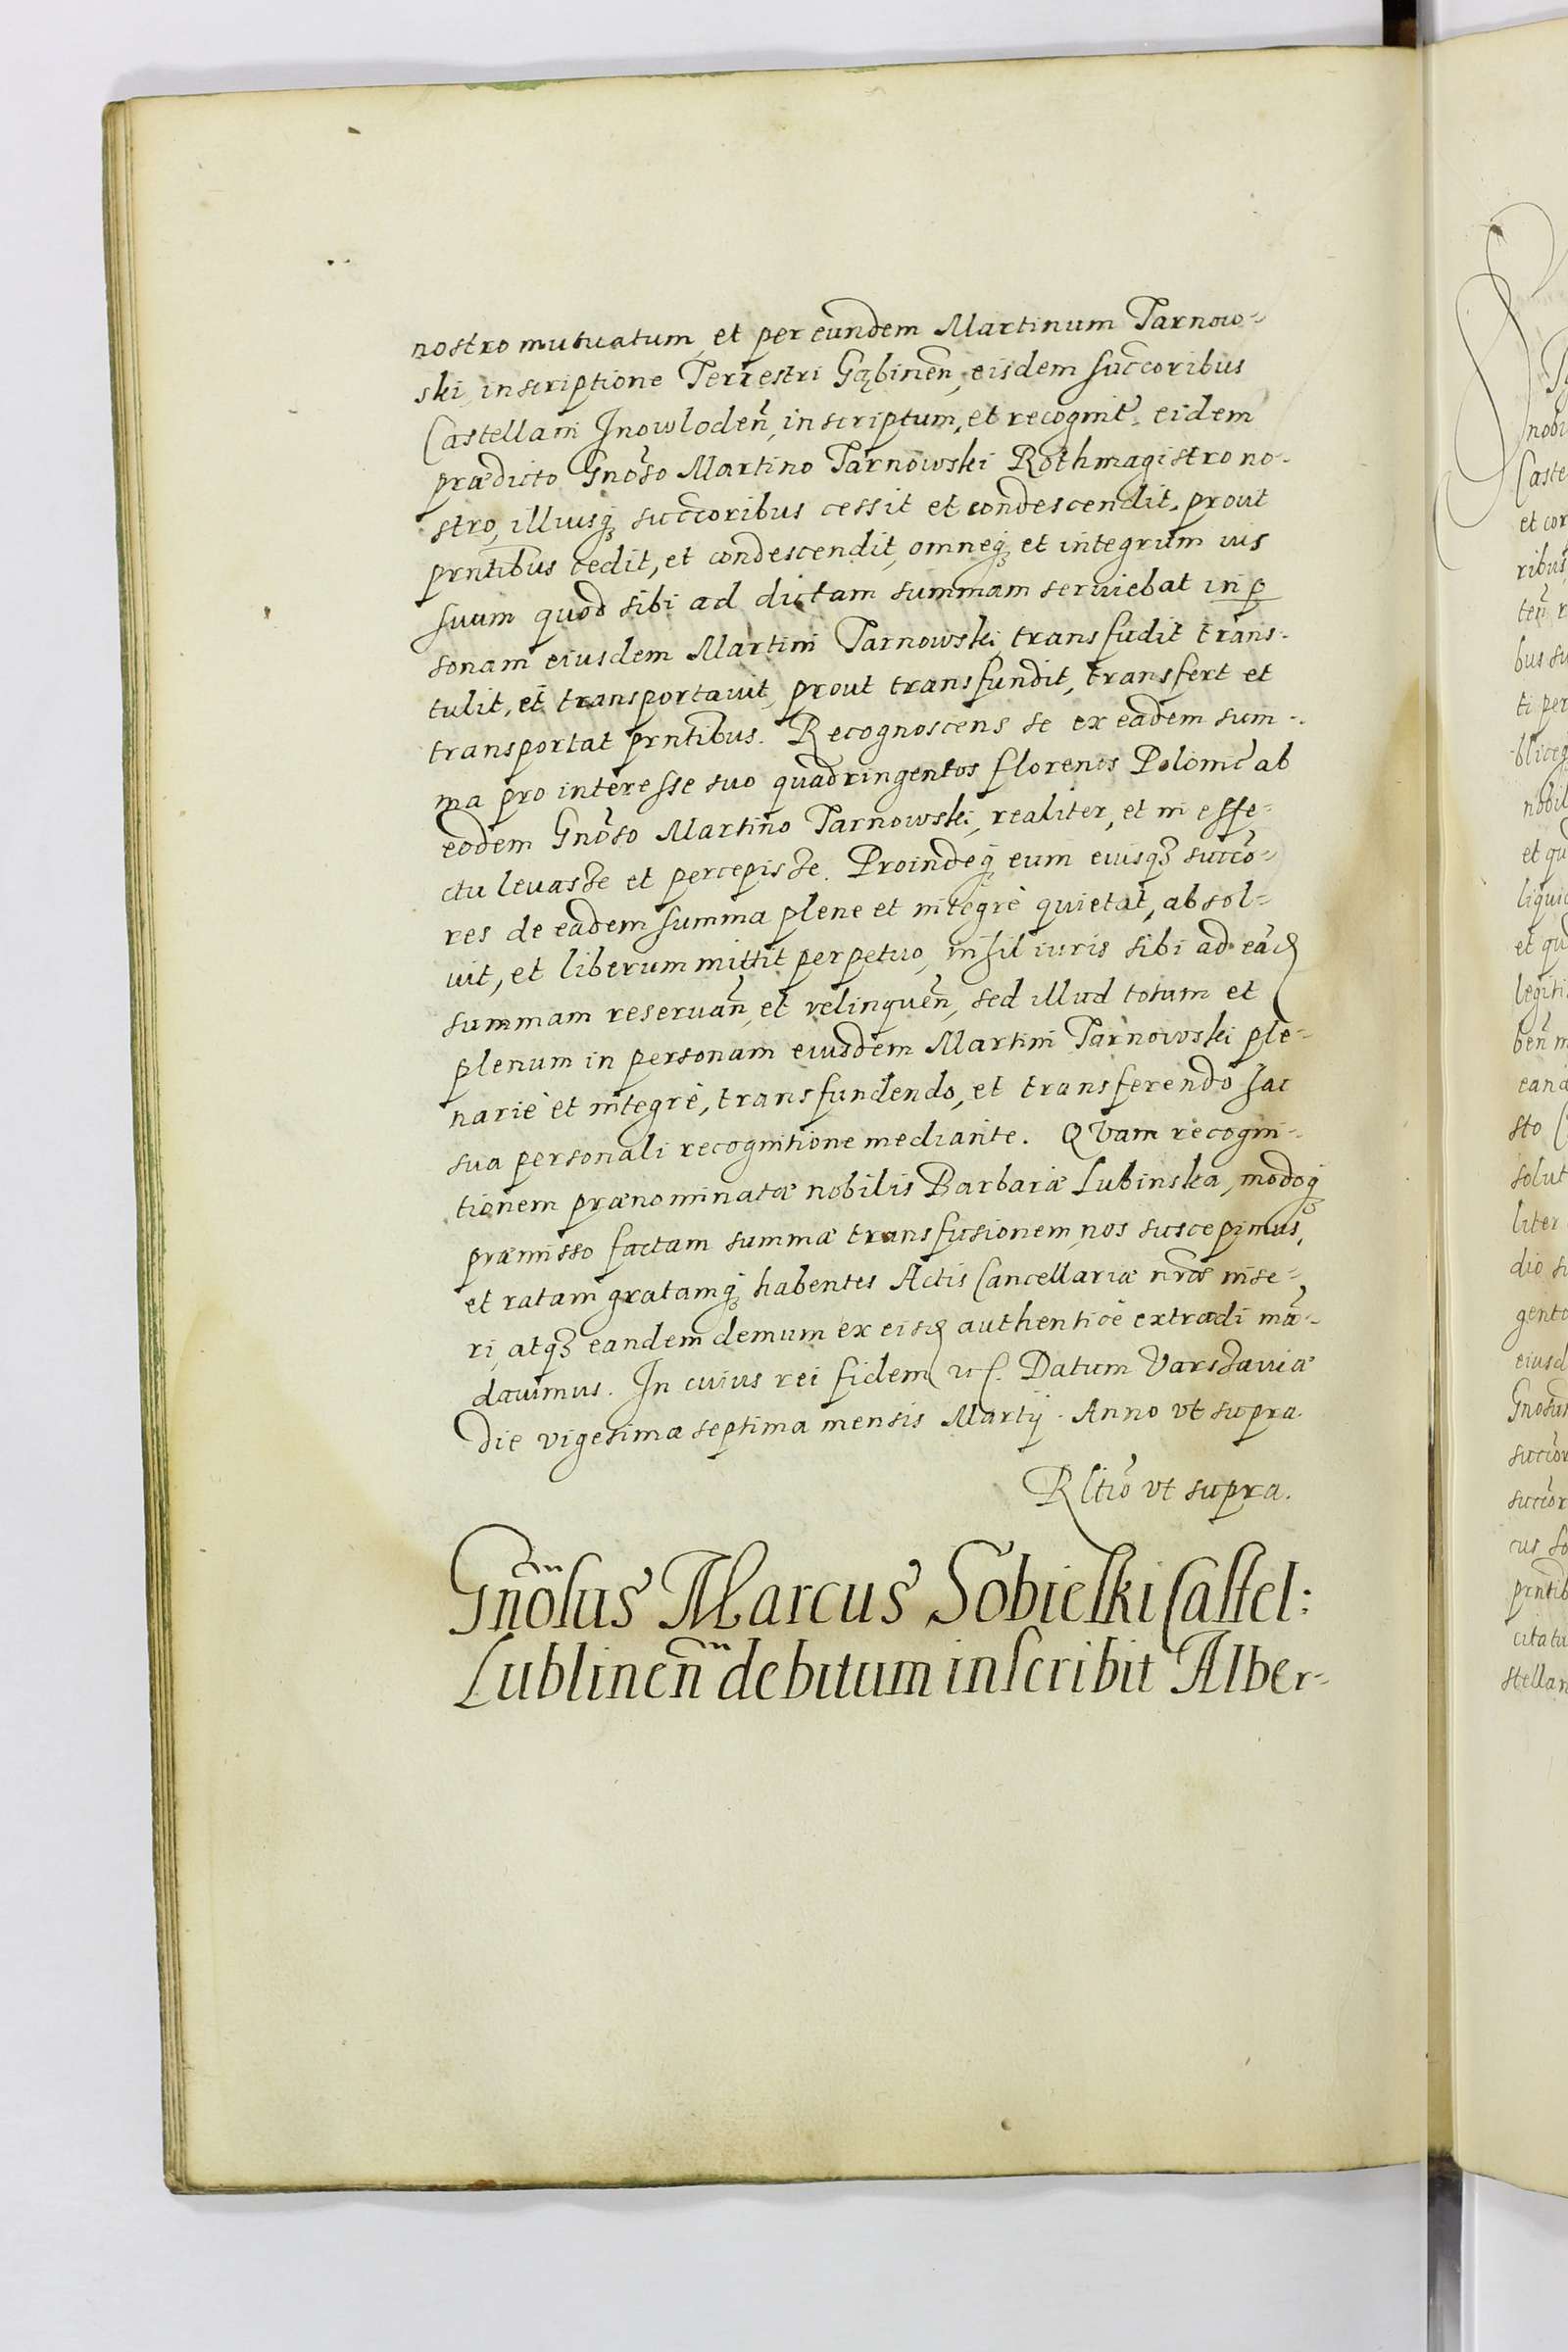 nostro mutuatum, et per eundem Martinum Tarnow-
ski, inscriptione Terrestri Gąbinen̄, eisdem succoribus
Castellani Inowloden̄, inscriptum, et recognit̄. eidem
prædicto Gnōso Martino Tarnowski Rothmagistro no-
stro, illiusq̨ succoribus cessit et condescendit, prout
prntibus cedit, et condescendit, omneq̨ et integrum ius
suum quod sibi ad dictam summam seruiebat in p̱
sonam eiusdem Martini Tarnowski, transfudit trans-
tulit, et transportauit, prout transfundit, transfert et
transportat prntibus. Recognoscens se ex eadem sum-
ma pro interesse suo quadringentos florenos Polonic̄ ab
eodem Gnōso Martino Tarnowski, realiter, et in effe-
ctu leuasse et percepisse. Proindeq̨ eum eiusqȝ succō-
res de eadem summa plene et integrè quietat, absol-
uit, et liberum mittit perpetuo, nihil iuris sibi ad eād
summam reseruan̄, et relinquen̄, sed illud totum et
plenum in personam eiusdem Martini Tarnowski ple-
nariè et integrè, transfundendo, et transferendo hac
sua personali recognitione mediante. QVam recogni-
tionem prænominatæ nobilis Barbaræ Lubinska, modoq̨
præmisso factam summæ transfusionem, nos suscepimus,
et ratam gratamq̨ habentes Actis Cancellariæ nrāe inse-
ri, atqȝ eandem demum ex eisd authenticè extradi mā-
dauimus. In cuius rei fidem etc. Datum Varsauiæ
die vigesima septima mensis Martij. Anno vt supra
Rltiō vt supra.
Gnōsus Marcus Sobieski Castel:
Lublinen̄ debitum inscribit Alber-
nobi
Caste
et cor
ribus
ten̄ r
bus su
ti per
bliceq̨
nobil
et qu
liqui
et qu
legiti
ben̄ m
ean
sto C
solut
liter
dio s
gento
eiusd
Gnosu
succor
succor
cus So
prntib
citatu
stellan